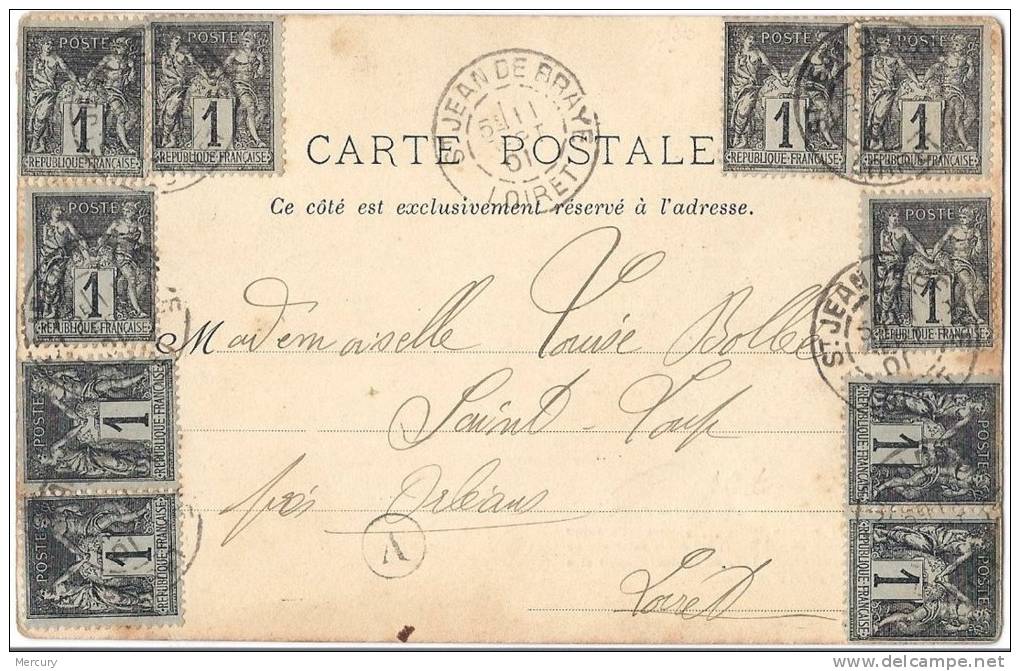 POSTE POSTE POSTE POSTE
1 1 1 1
REPUBLIQUE FRANÇAISE REPUBLIQUE FRANÇAISE REPUBLIQUE FRANÇAISE REPUBLIQUE FRANÇAISE
ST JEAN DE BRAYE
11
01
LOIRET
CARTE POSTALE
Ce côté est exclusivement réservé à l'adresse.
POSTE POSTE
1 1
REPUBLIQUE FRANÇAISE REPUBLIQUE FRANÇAISE
ST JEAN
01
Mademoiselle Louise Bollée
Saint-Loup
près Orléans
Loiret
POSTE 1 REPUBLIQUE FRANÇAISE
POSTE 1 REPUBLIQUE FRANÇAISE
POSTE 1 REPUBLIQUE FRANÇAISE
POSTE 1 REPUBLIQUE FRANÇAISE
Mercury
delcampe.net